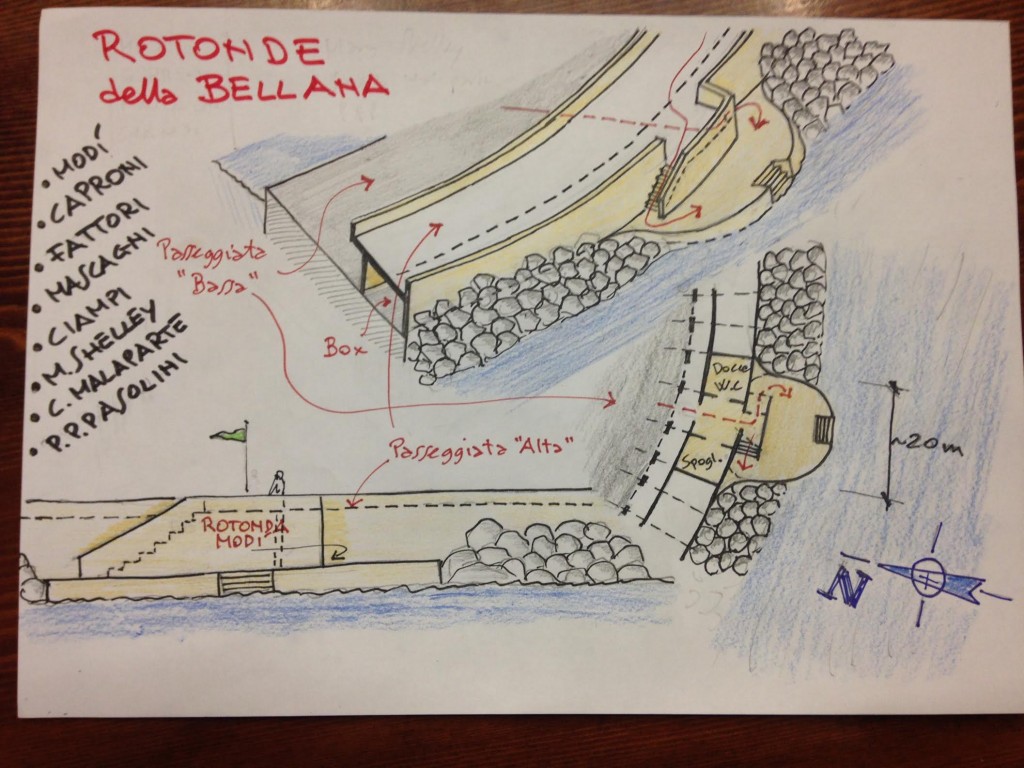 ROTONDE
della BELLANA
• MODÍ
• CAPRONI
• FATTORI
• MASCAGNI
• CIAMPI
• M. SHELLEY
• C. MALAPARTE
• P.P. PASOLINI
Passeggiata
"Bassa"
Box
Passeggiata "Alta"
ROTONDA
MODI'
Docce
W.C.
Spogl.
~20 m
N